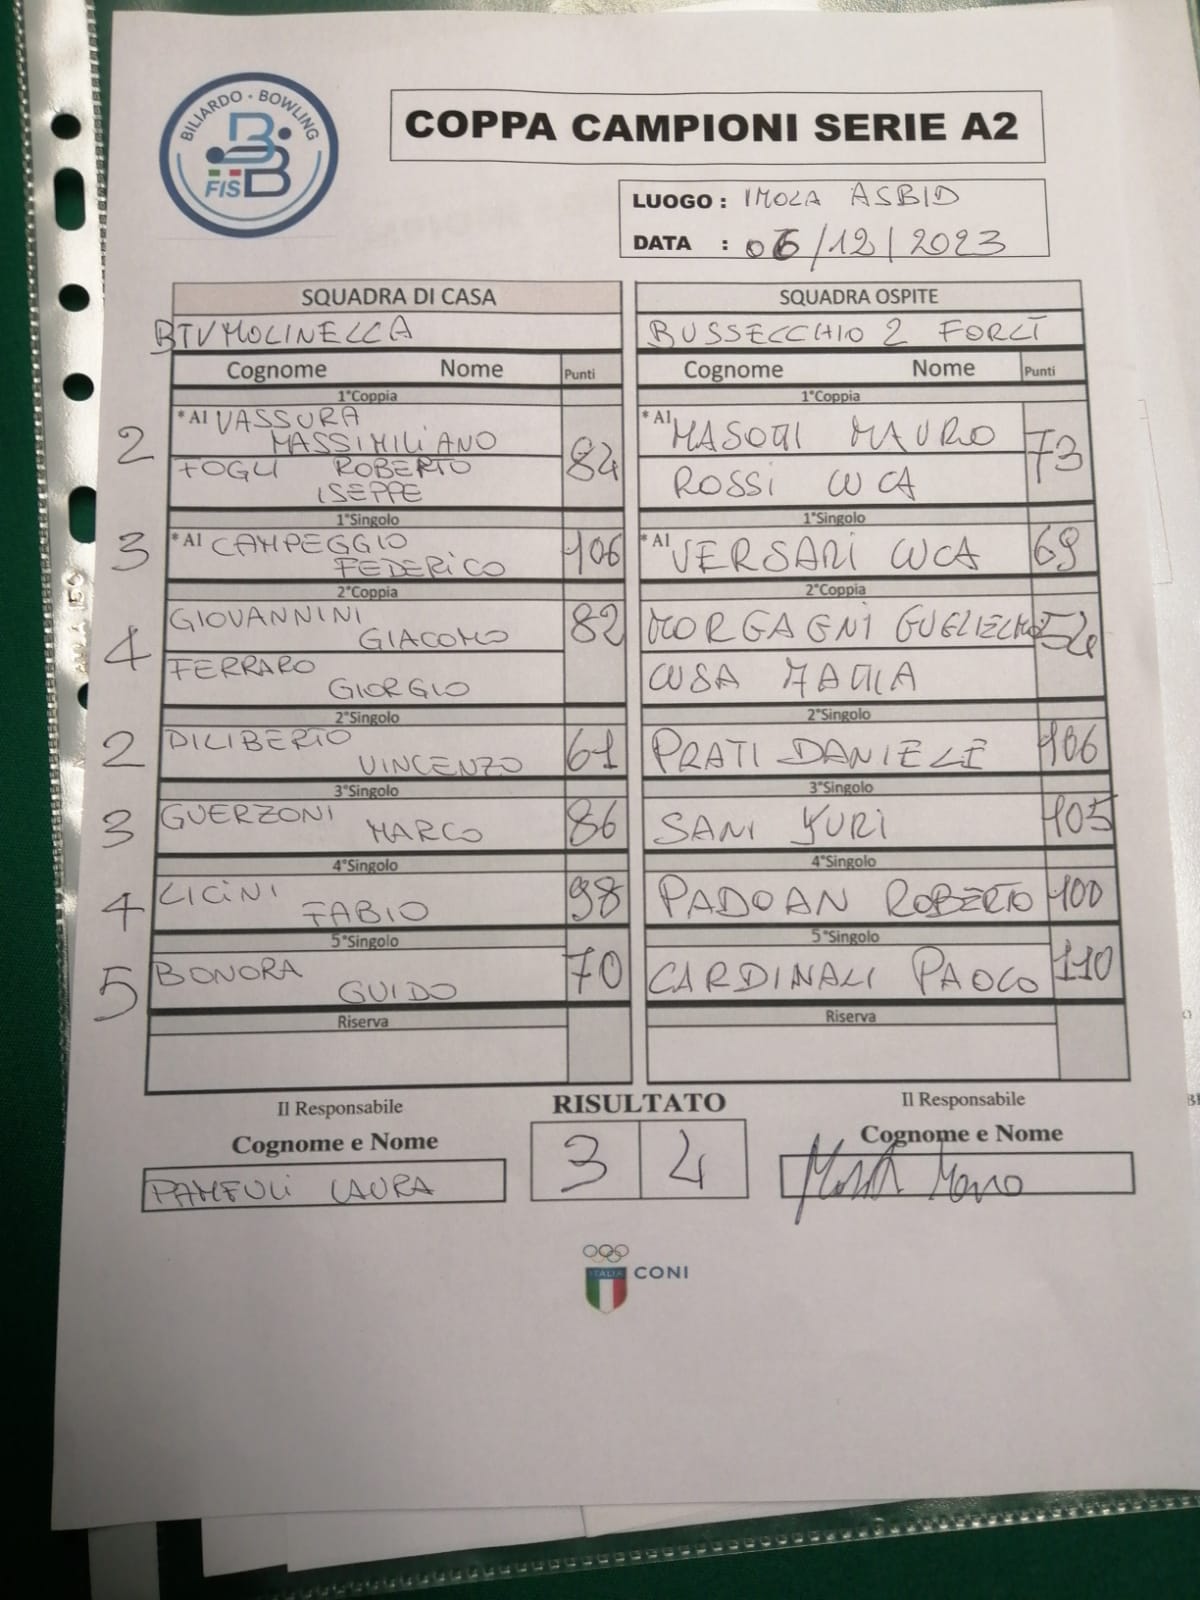 BILIARDO - BOWLING
FISBB
COPPA CAMPIONI SERIE A2
LUOGO : IMOLA ASBID
DATA : 06/12/2023
SQUADRA DI CASA
BTV MOLINELLA
Cognome Nome Punti
1°Coppia
2 *A1 VASSURA
MASSIMILIANO 84
FOGLI ROBERTO
ISEPPE
1°Singolo
3 *A1 CAMPEGGIO 106
FEDERICO
2°Coppia
GIOVANNINI 82
GIACOMO
4 FERRARO
GIORGIO
2°Singolo
2 DILIBERTO 61
VINCENZO
3°Singolo
3 GUERZONI 86
MARCO
4°Singolo
4 LICINI 98
FABIO
5°Singolo
5 BONORA 70
GUIDO
Riserva
SQUADRA OSPITE
BUSSECCHIO 2 FORLÌ
Cognome Nome Punti
1°Coppia
*A1 MASOTTI MAURO 73
ROSSI LUCA
1°Singolo
*A1 VERSARI LUCA 69
2°Coppia
MORGAGNI GUGLIELMO 54
CUSA MATTIA
2°Singolo
PRATI DANIELE 106
3°Singolo
SANI YURI 105
4°Singolo
PADOAN ROBERTO 100
5°Singolo
CARDINALI PAOLO 110
Riserva
Il Responsabile
Cognome e Nome
PAMFULI LAURA
RISULTATO
3 4
Il Responsabile
Cognome e Nome
ITALIA
CONI